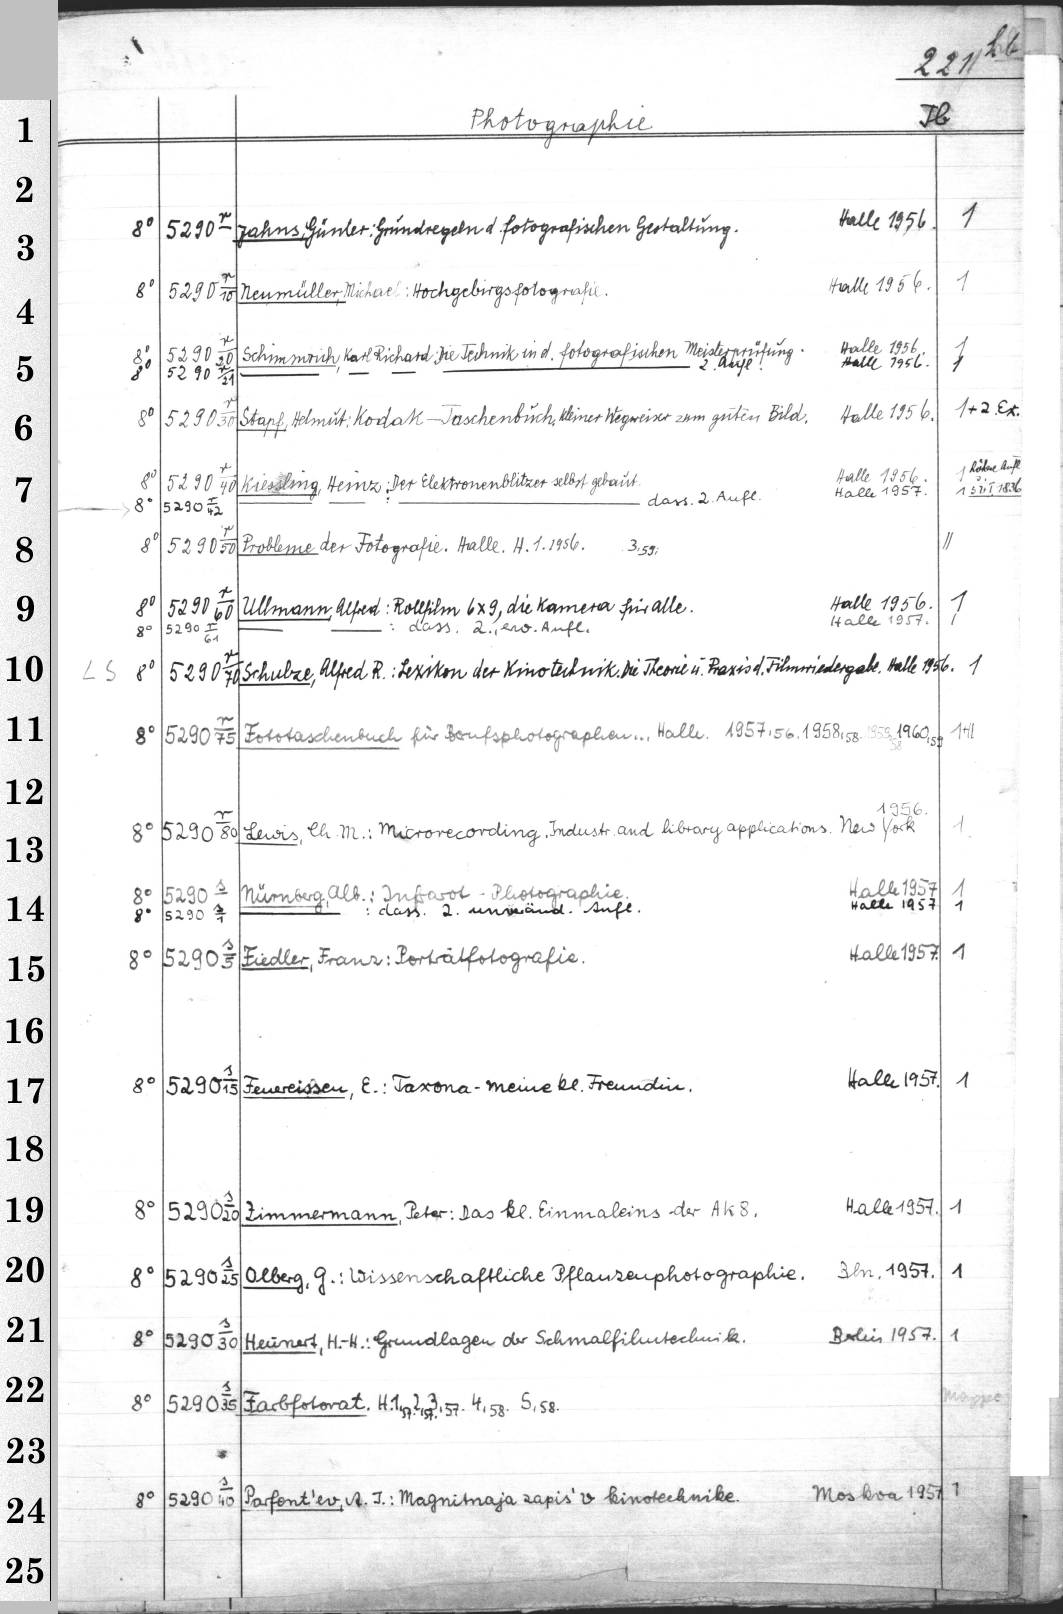 221
Tb
Photographie
1
2
3 8° 5290 r/– Jahns, Günter: Grundregeln d. fotografischen Gestaltung. Halle 1956. 1
4 8° 5290 r/10 Neumüller, Michael: Hochgebirgsfotografie. Halle 1956. 1
8° 5290 r/20 Schimmrich, Karl Richard: Die Technik in d. fotografischen Meisterprüfung. Halle 1956. 1
5 8° 5290 r/21 2. Aufl. Halle 1956. 1
6 8° 5290 r/30 Stapf, Helmut: Kodak-Taschenbuch, kleiner Wegweiser zum guten Bild. Halle 1956. 1+2. Ex.
7 8° 5290 r/40 Kiessling, Heinz: Der Elektronenblitzer selbst gebaut. Halle 1956. 1
8° 5290 r/42 : dass. 2. Aufl. Halle 1957. 1
8 8° 5290 r/50 Probleme der Fotografie. Halle. H. 1.1956. 3,59. //
9 8° 5290 r/60 Ullmann, Alfred: Rollfilm 6x9, die Kamera für alle. Halle 1956. 1
8° 5290 r/61 : dass. 2., erw. Aufl. Halle 1957. 1
10 LS 8° 5290 r/70 Schulze, Alfred R.: Lexikon der Kinotechnik. Die Theorie u. Praxis d. Filmwiedergabe. Halle 1956. 1
11 8° 5290 r/75 Fototaschenbuch für Berufsphotographen... Halle. 1957,56. 1958,58. 1959,58 1960,59
12
1956.
13 8° 5290 r/80 Lewis, Ch. M.: Microrecording. Industr. and library applications. New York 1
8° 5290 s/– Nürnberg, Alb.: Infrarot-Photographie. Halle 1957 1
14 8° 5290 s/1 : dass. 2. unveränd. Aufl. Halle 1957 1
15 8° 5290 s/5 Fiedler, Franz: Porträtfotografie. Halle 1957. 1
16
17 8° 5290 s/15 Feuereissen, E.: Taxona-meine kl. Freundin. Halle 1957. 1
18
19 8° 5290 s/20 Zimmermann, Peter: Das kl. Einmaleins der AK 8. Halle 1957. 1
20 8° 5290 s/25 Olberg, G.: Wissenschaftliche Pflanzenphotographie. Bln. 1957. 1
21 8° 5290 s/30 Heunert, H.-H.: Grundlagen der Schmalfilmtechnik. Berlin 1957. 1
22 8° 5290 s/35 Farbfotorat. H. 1,57. 2,57. 3,57. 4,58. 5,58. Mappe
23
24 8° 5290 s/40 Parfent'ev, A. I.: Magnitnaja zapis' v kinotechnike. Moskva 1957 1
25